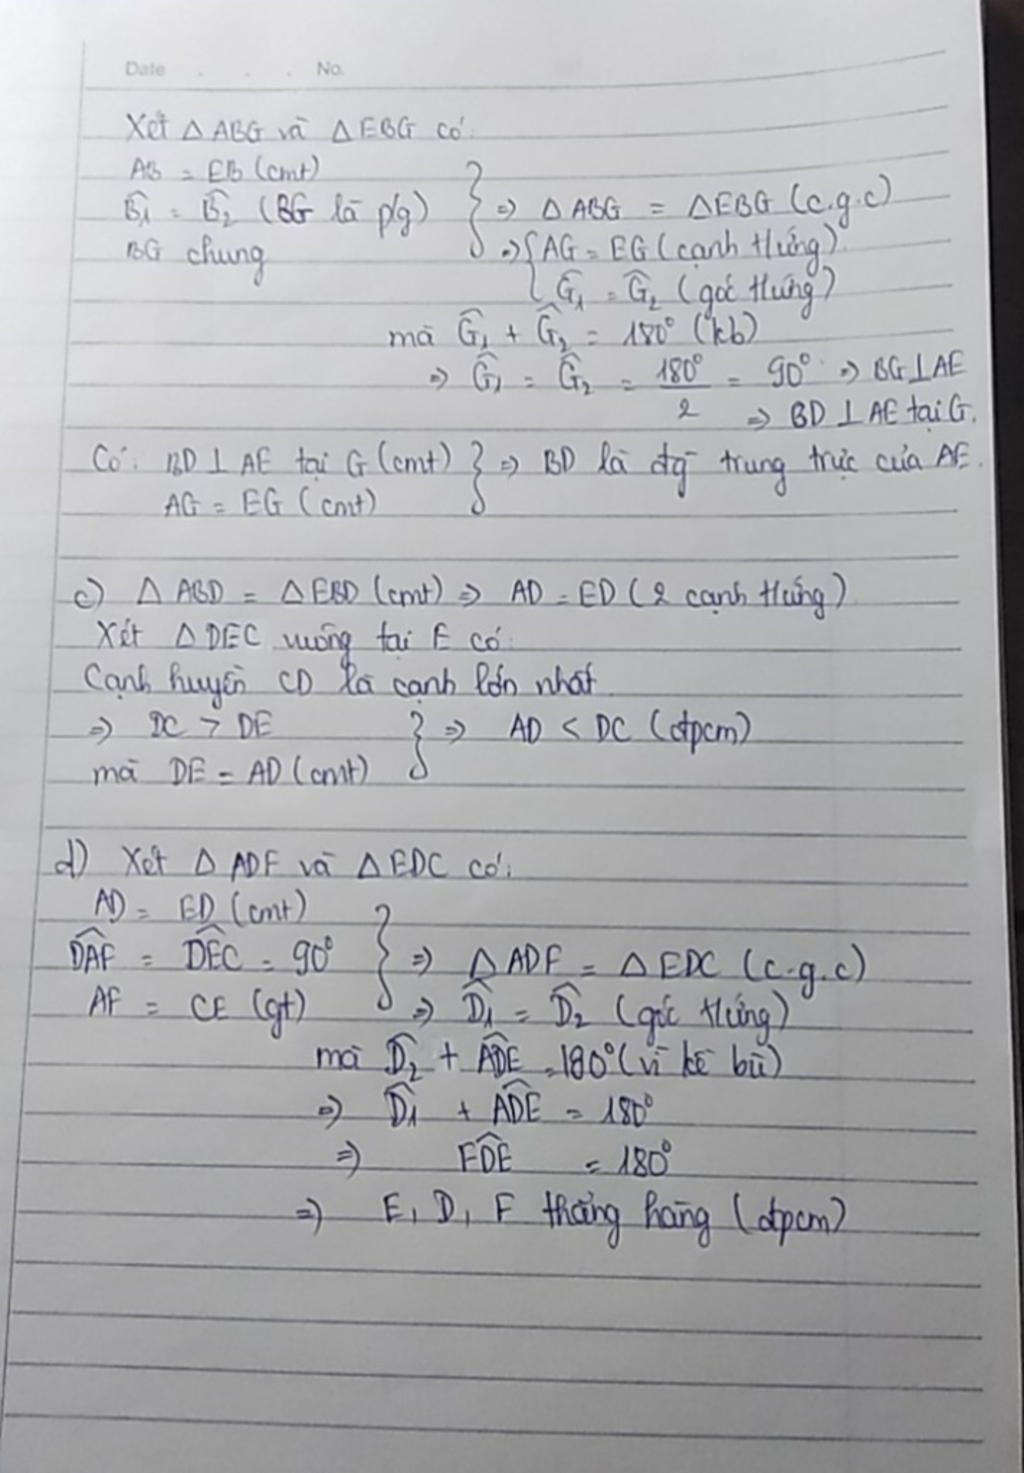 Date . . . No.
Xét △ ABG và △ EBG có:
AB = EB (cmt)
B̂₁ = B̂₂ (BG là p/g) } ⇒ △ ABG = △EBG (c.g.c)
BG chung ⇒ { AG = EG (cạnh tứng)
Ĝ₁ = Ĝ₂ (góc tứng)
mà Ĝ₁ + Ĝ₂ = 180° (kb)
⇒ Ĝ₁ = Ĝ₂ = 180°/2 = 90° ⇒ BG⊥AE
⇒ BD ⊥ AE tại G.
Có: BD ⊥ AE tại G (cmt) } ⇒ BD là đg trung trực của AE.
AG = EG (cmt)
c) △ ABD = △EBD (cmt) ⇒ AD = ED (2 cạnh tứng)
Xét △DEC vuông tại E có:
Cạnh huyền CD là cạnh lớn nhất
⇒ DC > DE } ⇒ AD < DC (đpcm)
mà DE = AD (cmt)
d) Xét △ ADF và △EDC có:
AD = ED (cmt)
D̂AF = D̂EC = 90° } ⇒ △ADF = △EDC (c.g.c)
AF = CE (gt) ⇒ D̂₁ = D̂₂ (góc tứng)
mà D̂₂ + ÂDE = 180° (vì kề bù)
⇒ D̂₁ + ÂDE = 180°
⇒ F̂DE = 180°
⇒ E, D, F thẳng hàng (đpcm)